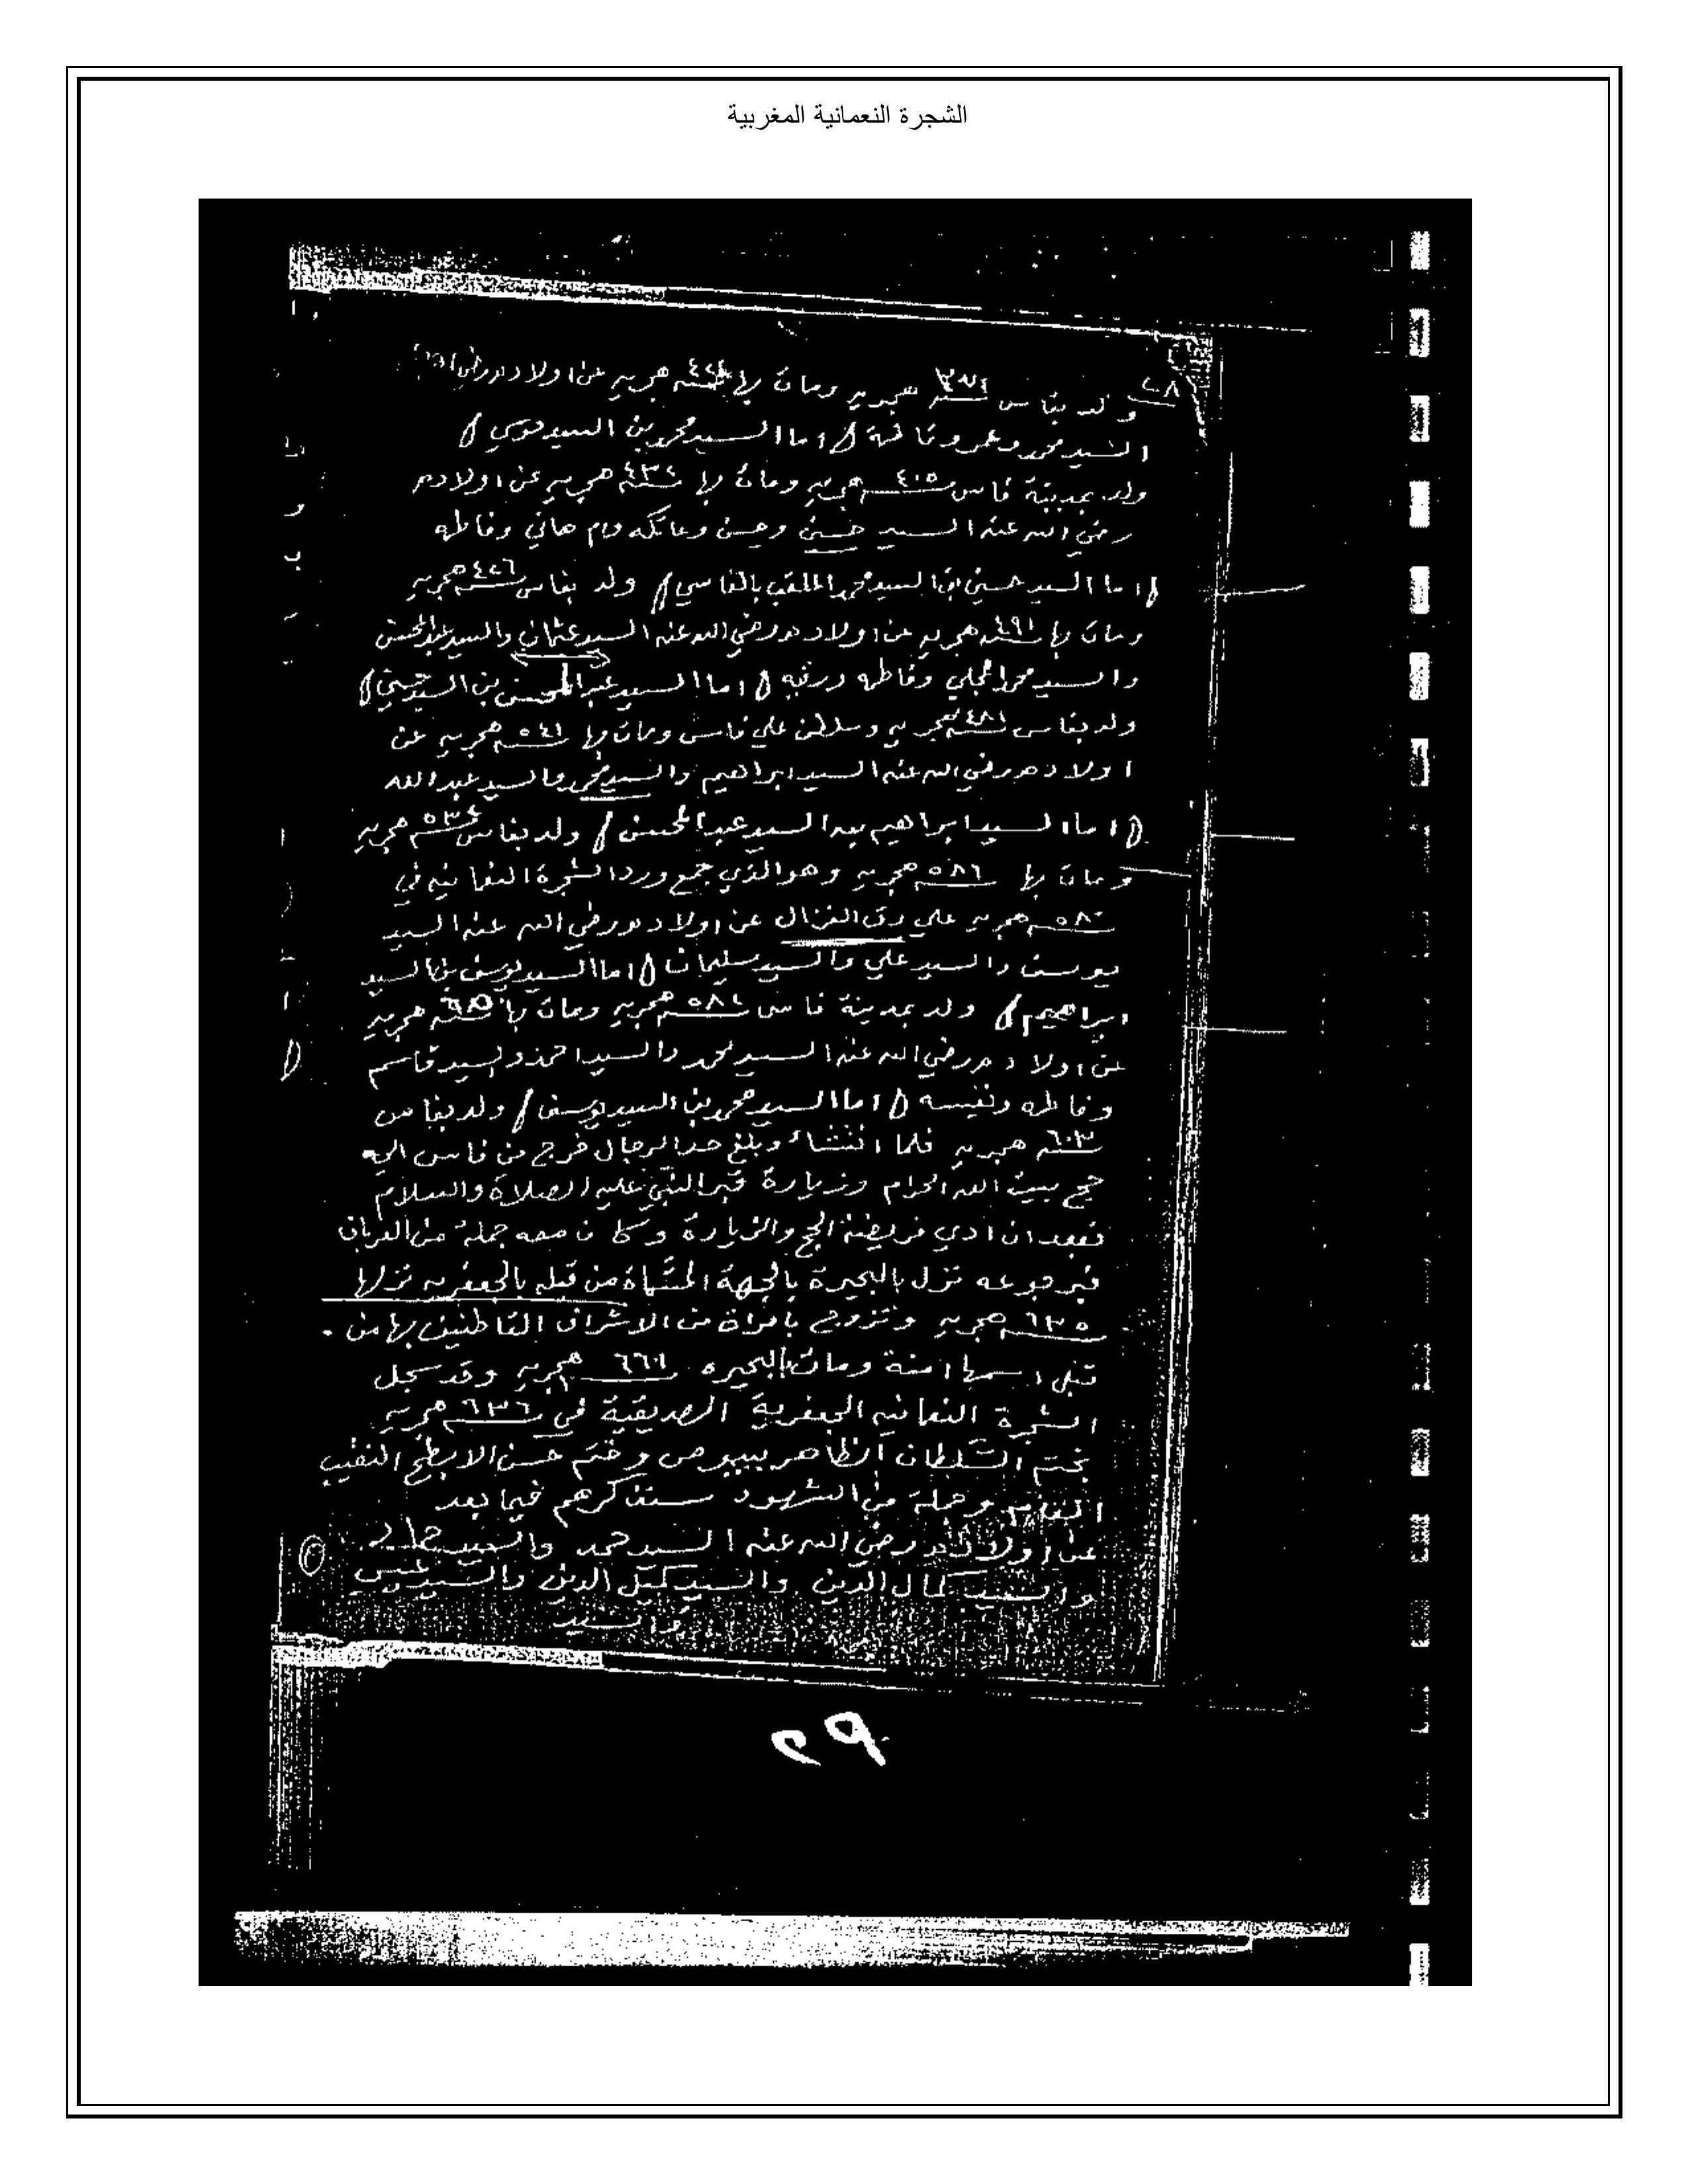 الشجرة النعمانية المغربية
٢٨
ولد بفاس سنة هجريه ومات بها سنة هجريه عن اولاده رضي
السيد محمد وعمر و () اما السيد محمد بن السيد موسي ()
ولد بمدينة فاس ٤٠٥ سنة هجريه ومات بها سنة هجريه عن اولاده
رضي الله عنه السيد حسين وحسن وعاتكه وام هاني وفاطمه
() اما السيد حسين بن السيد محمد الملقب بالفاسي () ولد بفاس سنة ٤٢٦ هجريه
ومات بها سنة ٤٩١ هجريه عن اولاده رضي الله عنه السيد عثمان والسيد عبد المحسن
والسيد محمد المجلي وفاطمه ورقيه () اما السيد عبد المحسن بن السيد حسين ()
ولد بفاس سنة ٤٨١ هجريه وسلطن علي فاس ومات بها سنة ٥٤١ هجريه عن
اولاده رضي الله عنه السيد ابراهيم والسيد محمد والسيد عبد الله
() اما السيد ابراهيم بن السيد عبد المحسن () ولد بفاس سنة ٥٣٤ هجريه
ومات بها سنة ٥٨٦ هجريه وهو الذي جمع ورد الشجرة النعمانيه في
سنة ٥٨٠ هجريه علي رق الغزال عن اولاده رضي الله عنه السيد
يوسف والسيد علي والسيد سليمان () اما السيد يوسف بن السيد
ابراهيم () ولد بمدينة فاس سنة هجريه ومات بها سنة هجريه
عن اولاده رضي الله عنه السيد محمد والسيد احمد والسيد قاسم
وفاطمه ونفيسه () اما السيد محمد بن السيد يوسف () ولد بفاس
سنة ٦٠٣ هجريه فلما انتشاء وبلغ حد الرجال خرج من فاس الي
حج بيت الله الحرام وزيارة قبر النبي عليه الصلاة والسلام
فبعد ان ادي فريضة الحج والزيارة وكان معه جملة من العربان
فبرجوعه نزل بالبحيرة بالجهة المسماة من قبله بالجعفريه نزلها
سنة ٦٣٥ هجريه وتزوج بامراة من الاشراف القاطنين بها من
قبل اسمها امنة ومات بالبحيره سنة ٦٦١ هجريه وقد سجل
الشجرة النعمانيه الجعفرية الصديقية في سنة ٦٣٦ هجريه
بختم السلطان الظاهر بيبرس وختم حسن الابطح النقيب
وجملة من الشهود ستذكرهم فيما بعد
عن اولاده رضي الله عنه السيد حمد والسيد
والسيد كمال الدين والسيد الدين والسيد
والسيد
٢٩